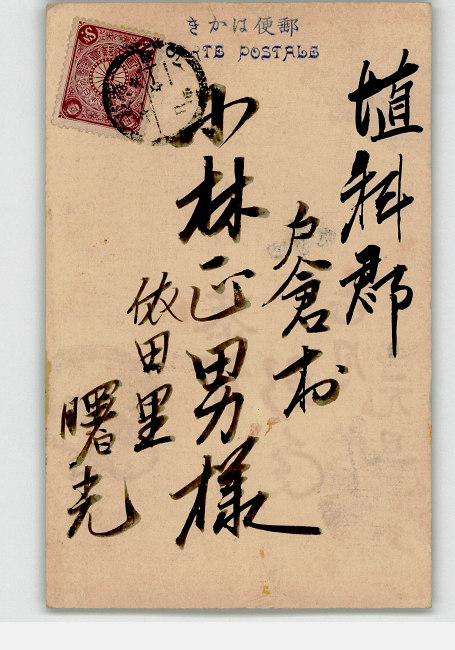 郵便はかき
CARTE POSTALE
埴科郡
戸倉村
小林正男様
依田里
曙光